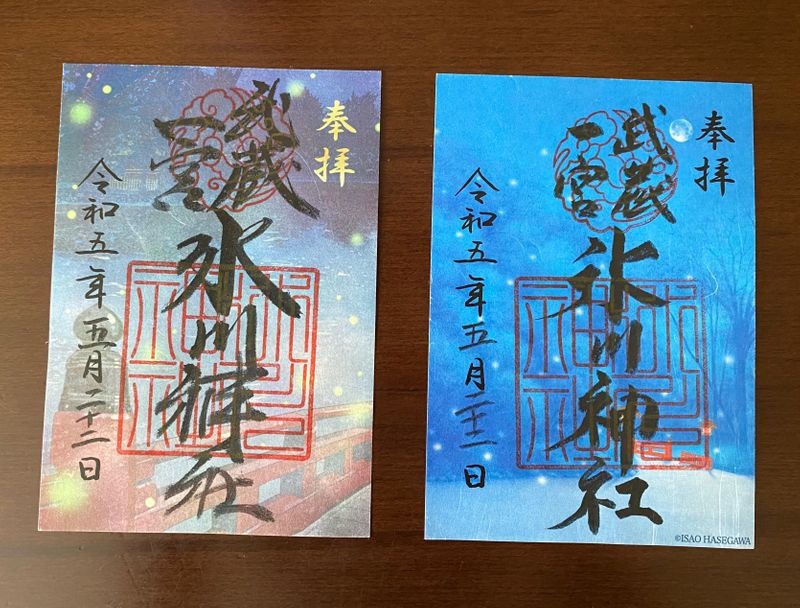 奉拝
武蔵
一宮
氷川神社
令和五年五月二十二日
奉拝
武蔵
一宮
氷川神社
令和五年五月二十二日
©ISAO HASEGAWA